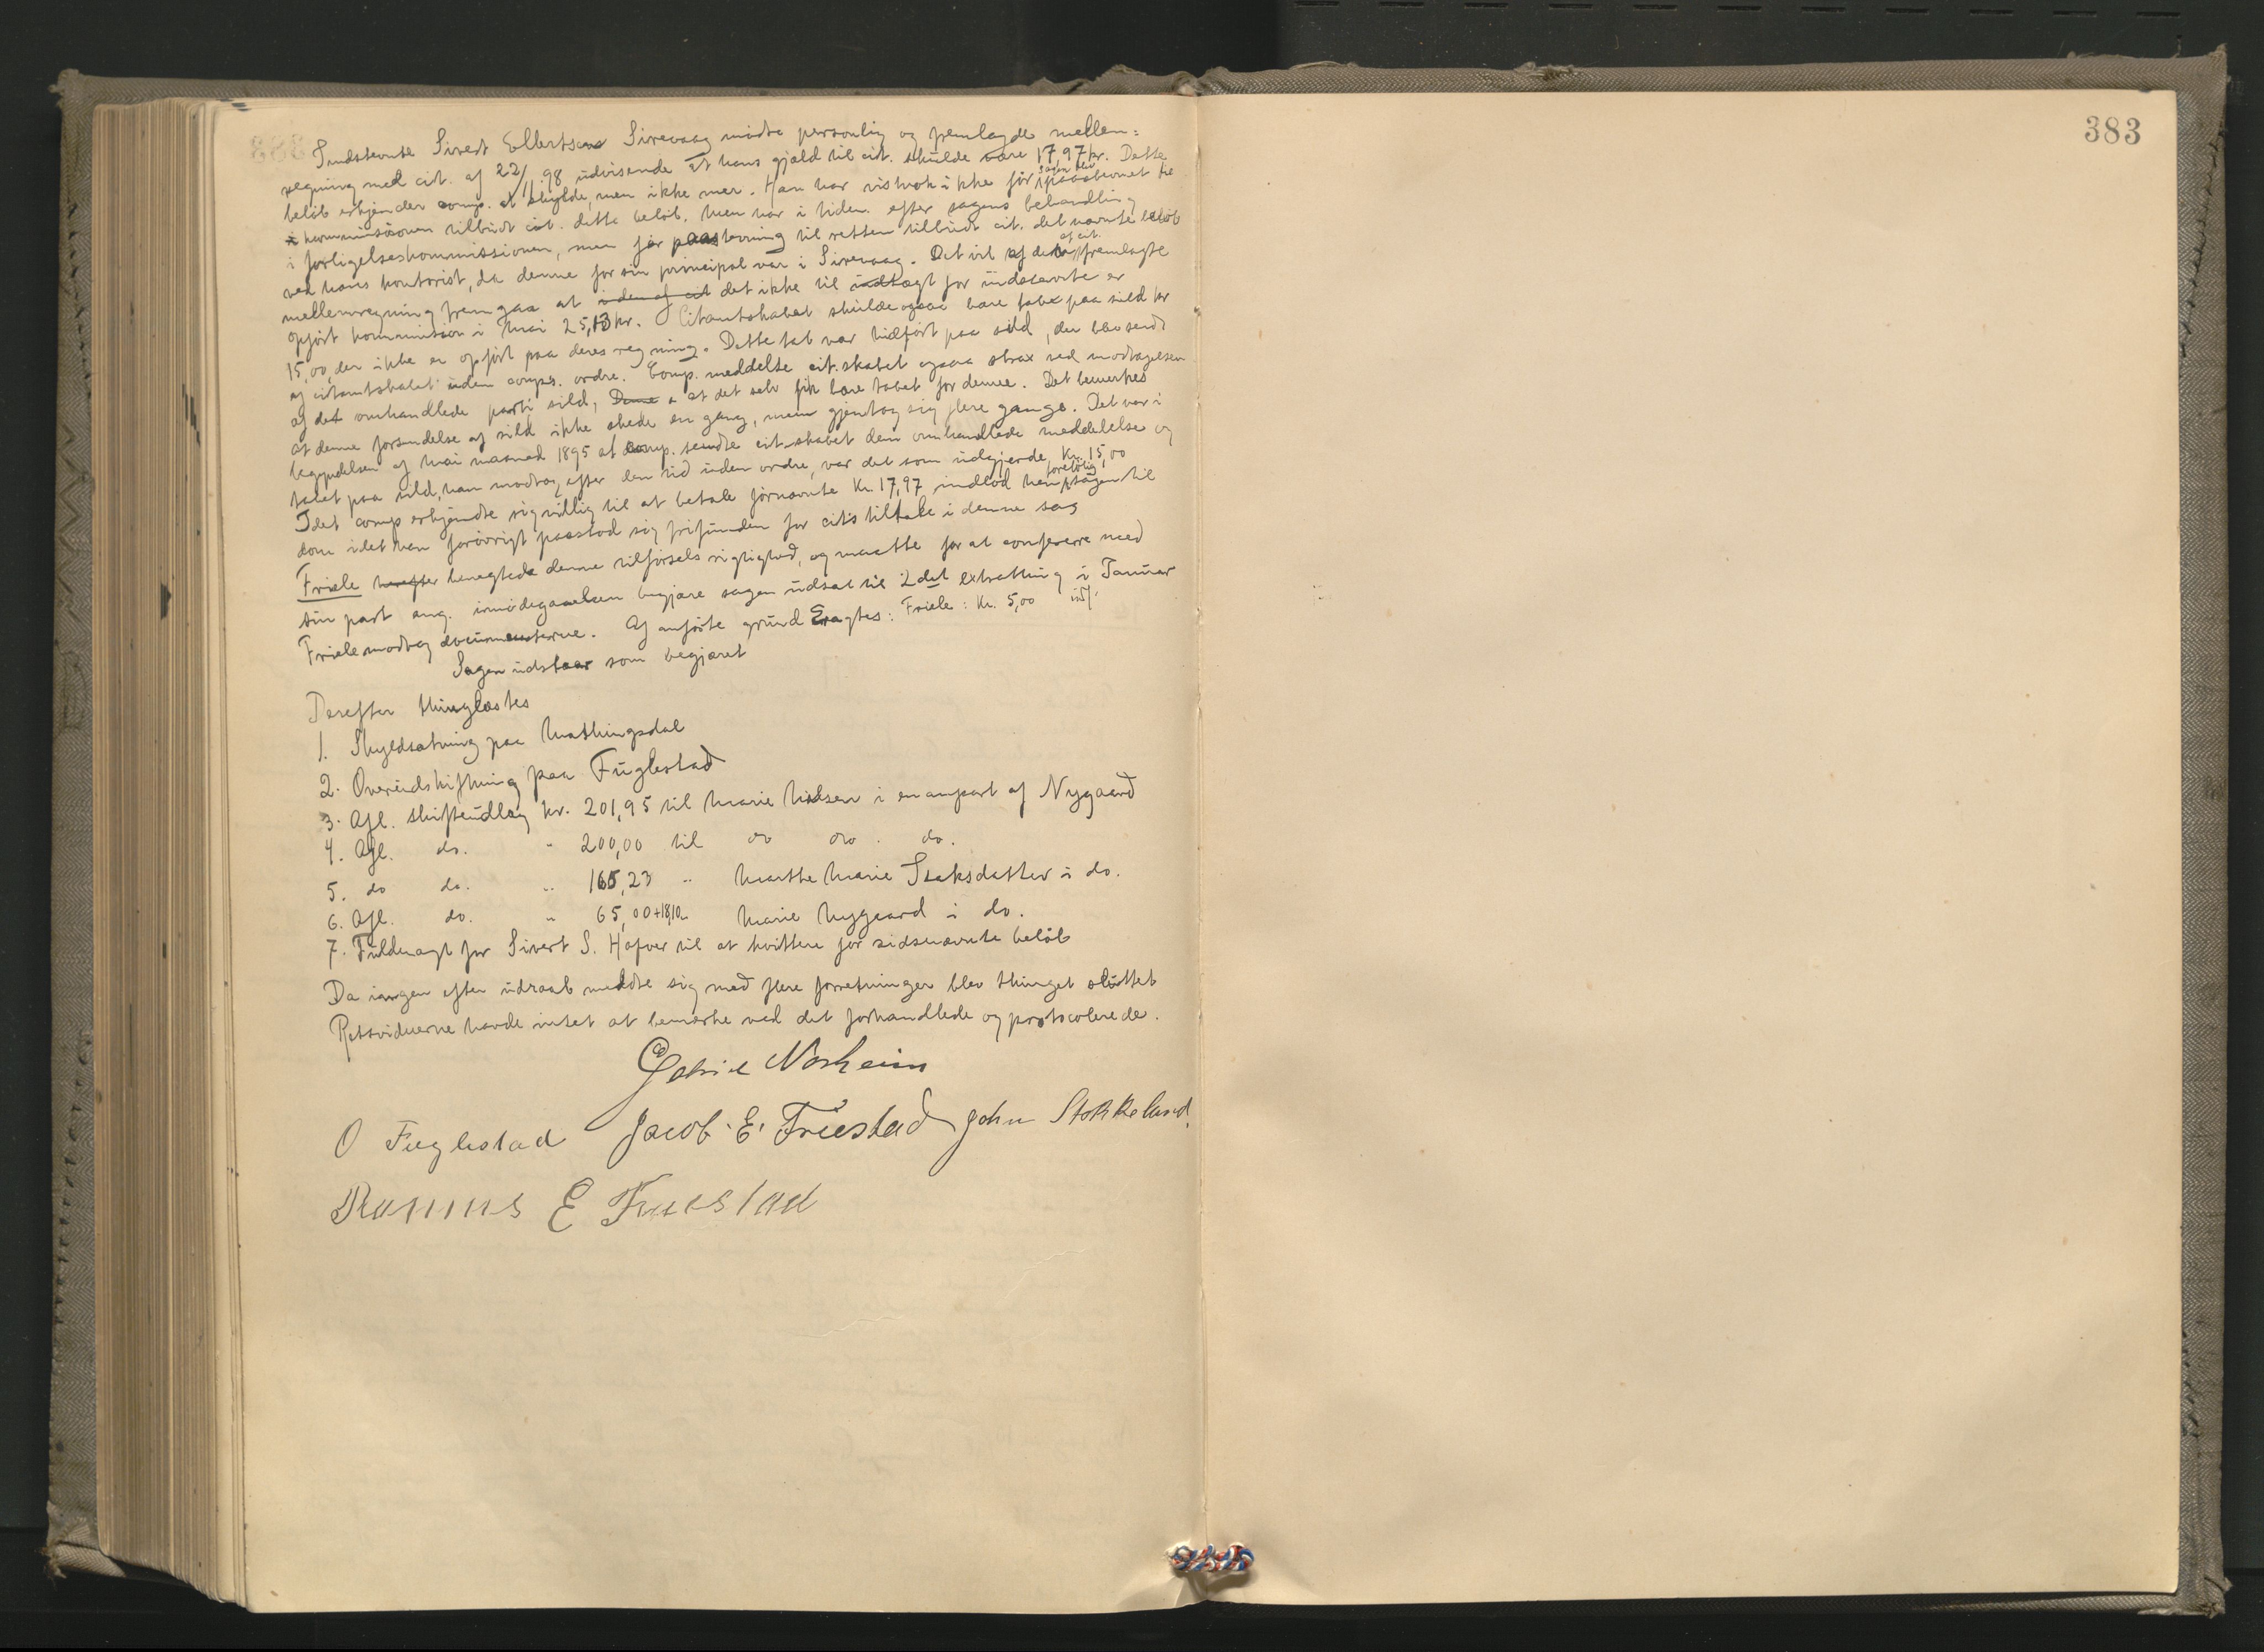 383
Indstevnte Sivert Ellertsen Sirevaag mødte personlig og fremlagde mellem=
regning med cit. af 22/11 98 udvisende at hans gjæld til cit. skulde være 17,97 kr. Dette
beløb erkjender comp. at skylde, men ikke mer. Han har vistnok ikke før sagen blev paastevnet til
i kommissionen tilbudt cit. dette beløb, men har i tiden efter sagens behandling
i forligelseskommissionen, men før paastevning til retten tilbudt cit. det nævnte beløb
ved hans kontorist, da denne for sin principal var i Sirevaag. Det vil af den af cit. fremlagte
mellemregning fremgaa at inden af cit det ikke til indtægt for indstevnte er
opført kommission i Mai 25,13 kr. Citantskabet skulde ogsaa bære tabet paa sild kr
15,00, der ikke er opført paa deres regning. Dette tab var tilført paa sild, der blev sendt
af citantskabet uden comps. ordre. Comp. meddelte cit.skabet ogsaa strax ved modtagelsen
af det omhandlede parti sild, Denne at det selv fik bære tabet for denne. Det bemerkes
at denne forsendelse af sild ikke skede en gang, men gjentog sig flere gange. Det var i
begyndelsen af Mai maaned 1895 at comp. sendte cit.skabet den omhandlede meddelelse og
tabet paa sild, han modtog efter den tid uden ordre, var det som udgjorde Kr. 15,00
Idet comp erkjendte sig villig til at betale førnævnte Kr. 17,97 indlod han foreløbig sagen til
dom idet han forøvrigt paastod sig frifunden for cit's tiltale i denne sag
Friele herefter benegtede denne tilførsels rigtighed, og maatte for at conferere med
sin part ang. imødegaaelsen begjære sagen udsat til 2det extrathing i Januar
Friele modtog documenterne. Af anførte grund Eragtes: Friele: Kr. 5,00
Sagen udstaar som begjæret
Derefter thinglæstes
1. Skyldsætning paa Mathingsdal
2. Overudskiftning paa Fuglestad
3. Afl. skifteudlæg kr. 201,95 til Marie Nilsen i en anpart af Nygaard
4. Afl. do. " 200,00 til do do. do.
5. do do. " 165,23 " Marthe Marie Isaksdatter i do.
6. Afl. do. " 65,00 + 18,10 Marie Nygaard i do.
7. Fuldmagt for Sivert S. Hafver til at kvittere for sidsnævnte beløb
Da ingen efter udraab meldte sig med flere forretninger blev thinget sluttet
Retsvidnerne havde intet at bemærke ved det forhandlede og protocolerede.
Gabriel Norheim
O Fuglestad Jacob E. Fruestad John Stokkeland.
Rasmus E Fruestad